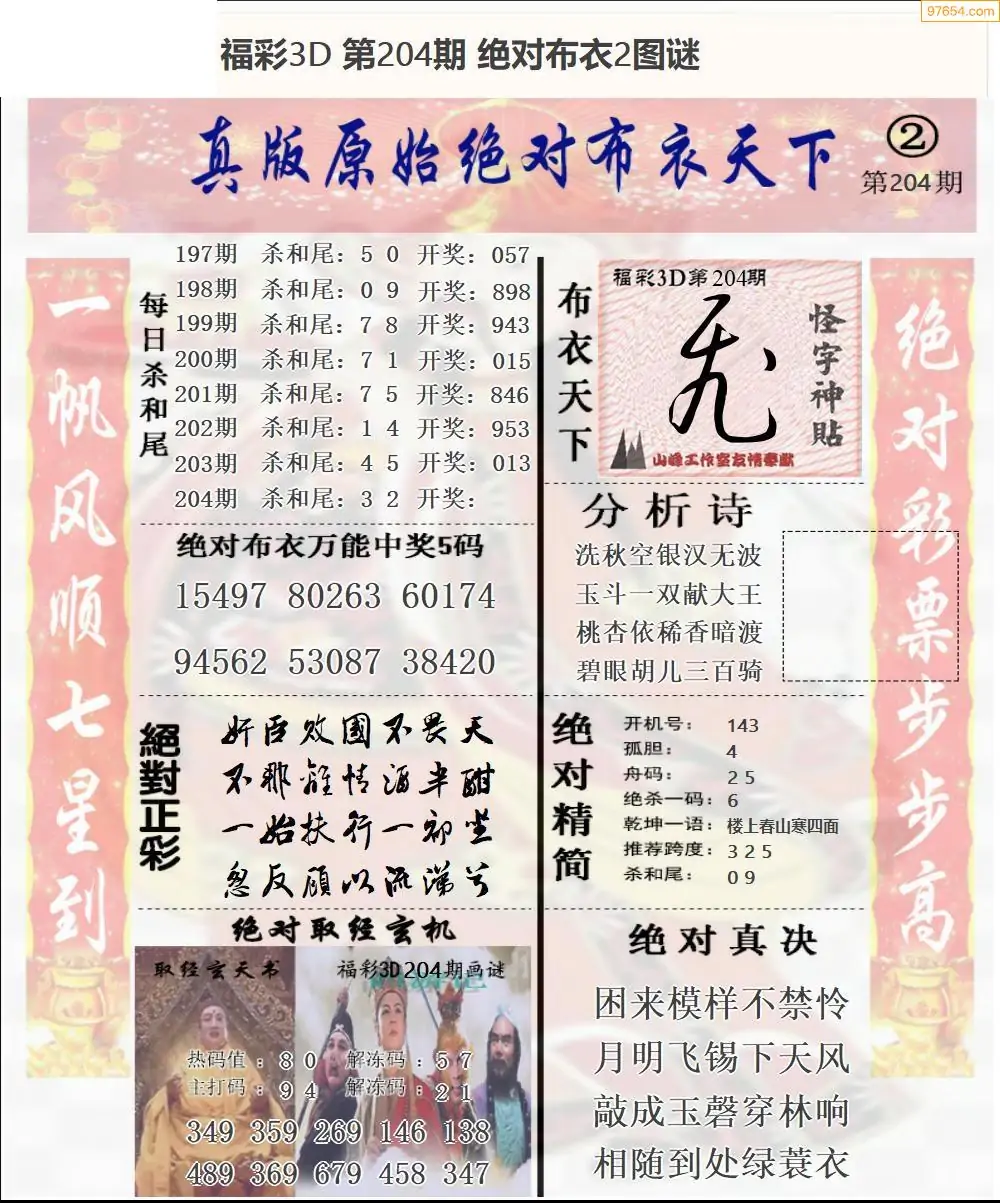 97654.com
福彩3D 第204期 绝对布衣2图谜
真版原始绝对布衣天下
②
第204期
一帆风顺七星到
每日杀和尾
197期 杀和尾：5 0 开奖：057
198期 杀和尾：0 9 开奖：898
199期 杀和尾：7 8 开奖：943
200期 杀和尾：7 1 开奖：015
201期 杀和尾：7 5 开奖：846
202期 杀和尾：1 4 开奖：953
203期 杀和尾：4 5 开奖：013
204期 杀和尾：3 2 开奖：
绝对布衣万能中奖5码
15497 80263 60174
94562 53087 38420
絕對正彩
奸臣败國不畏天
不那離情酒半酣
一始扶行一却坐
忽反顾以流涕兮
绝对取经玄机
取经玄天书
福彩3D204期画谜
热码值：8 0 解冻码：5 7
主打码：9 4 解冻码：2 1
349 359 269 146 138
489 369 679 458 347
布衣天下
福彩3D第204期
怪字神貼
山峰工作室友情奉献
分析诗
洗秋空银汉无波
玉斗一双献大王
桃杏依稀香暗渡
碧眼胡儿三百骑
绝对精简
开机号：143
孤胆：4
舟码：2 5
绝杀一码：6
乾坤一语：楼上春山寒四面
推荐跨度：3 2 5
杀和尾：0 9
绝对真决
困来模样不禁怜
月明飞锡下天风
敲成玉磬穿林响
相随到处绿蓑衣
绝对彩票步步高